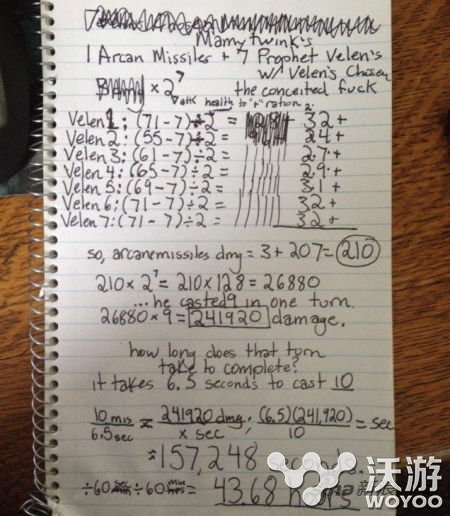 Mamytwink's
1 Arcan Missiles + 7 Prophet Velen's
w/ Velen's Chosen
× 2⁷ the conceited fuck
atk health to "+" ration
Velen 1: (71 - 7) ÷ 2 = 32 +
Velen 2: (55 - 7) ÷ 2 = 24 +
Velen 3: (61 - 7) ÷ 2 = 27 +
Velen 4: (65 - 7) ÷ 2 = 29 +
Velen 5: (69 - 7) ÷ 2 = 31 +
Velen 6: (71 - 7) ÷ 2 = 32 +
Velen 7: (71 - 7) ÷ 2 = 32 +
so, arcanemissiles dmg = 3 + 207 = 210
210 × 2⁷ = 210 × 128 = 26880
... he casted 9 in one turn.
26880 × 9 = 241920 damage.
how long does that turn
take to complete?
it takes 6.5 seconds to cast 10
10 mis / 6.5 sec = 241920 dmg / x sec ; (6.5)(241,920) / 10 = sec
157,248
÷ 60 ÷ 60 = 43.68 hours
沃游
WOYOO